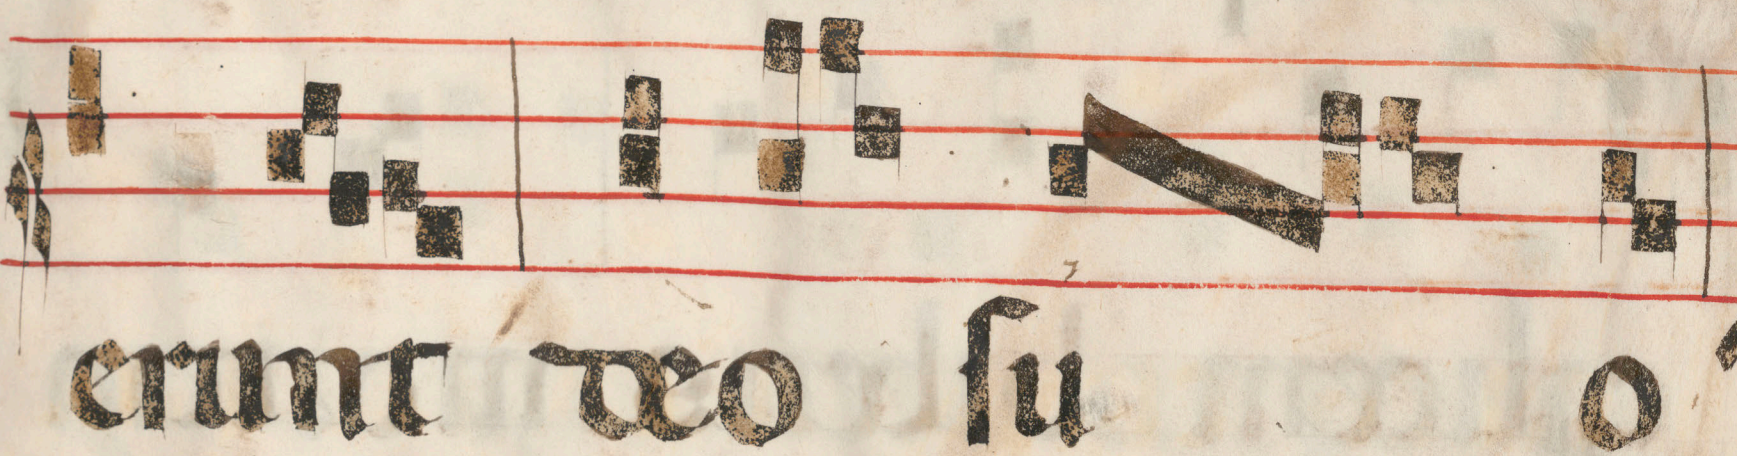 erunt deo ſu o